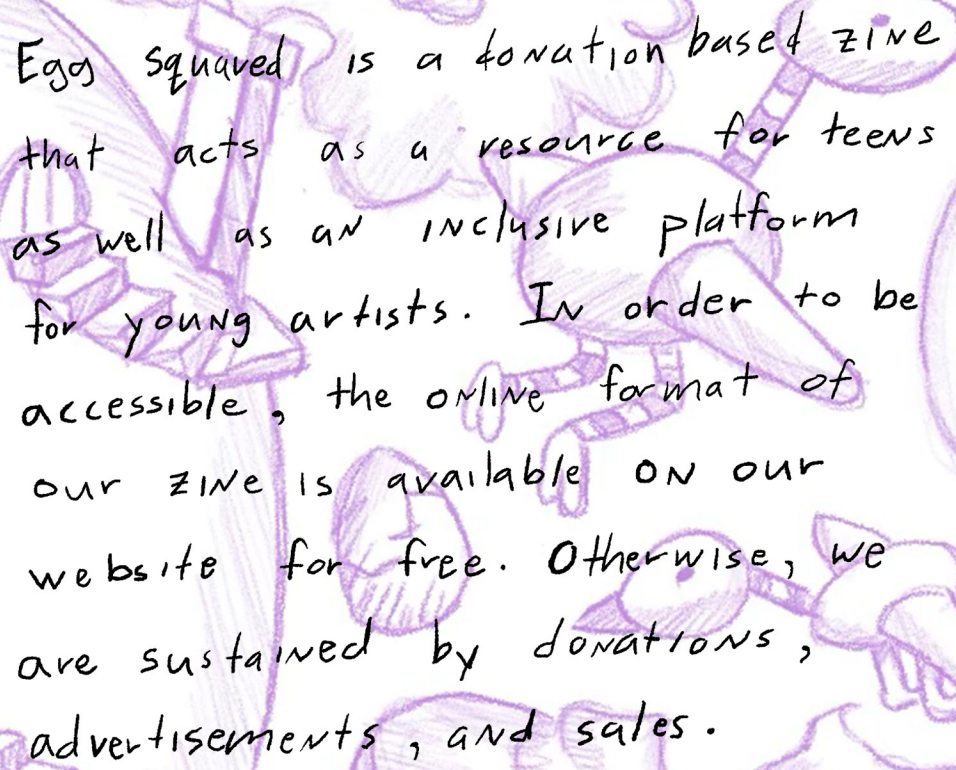 Egg squared is a donation based zine
that acts as a resource for teens
as well as an inclusive platform
for young artists. In order to be
accessible, the online format of
our zine is available on our
website for free. Otherwise, we
are sustained by donations,
advertisements, and sales.